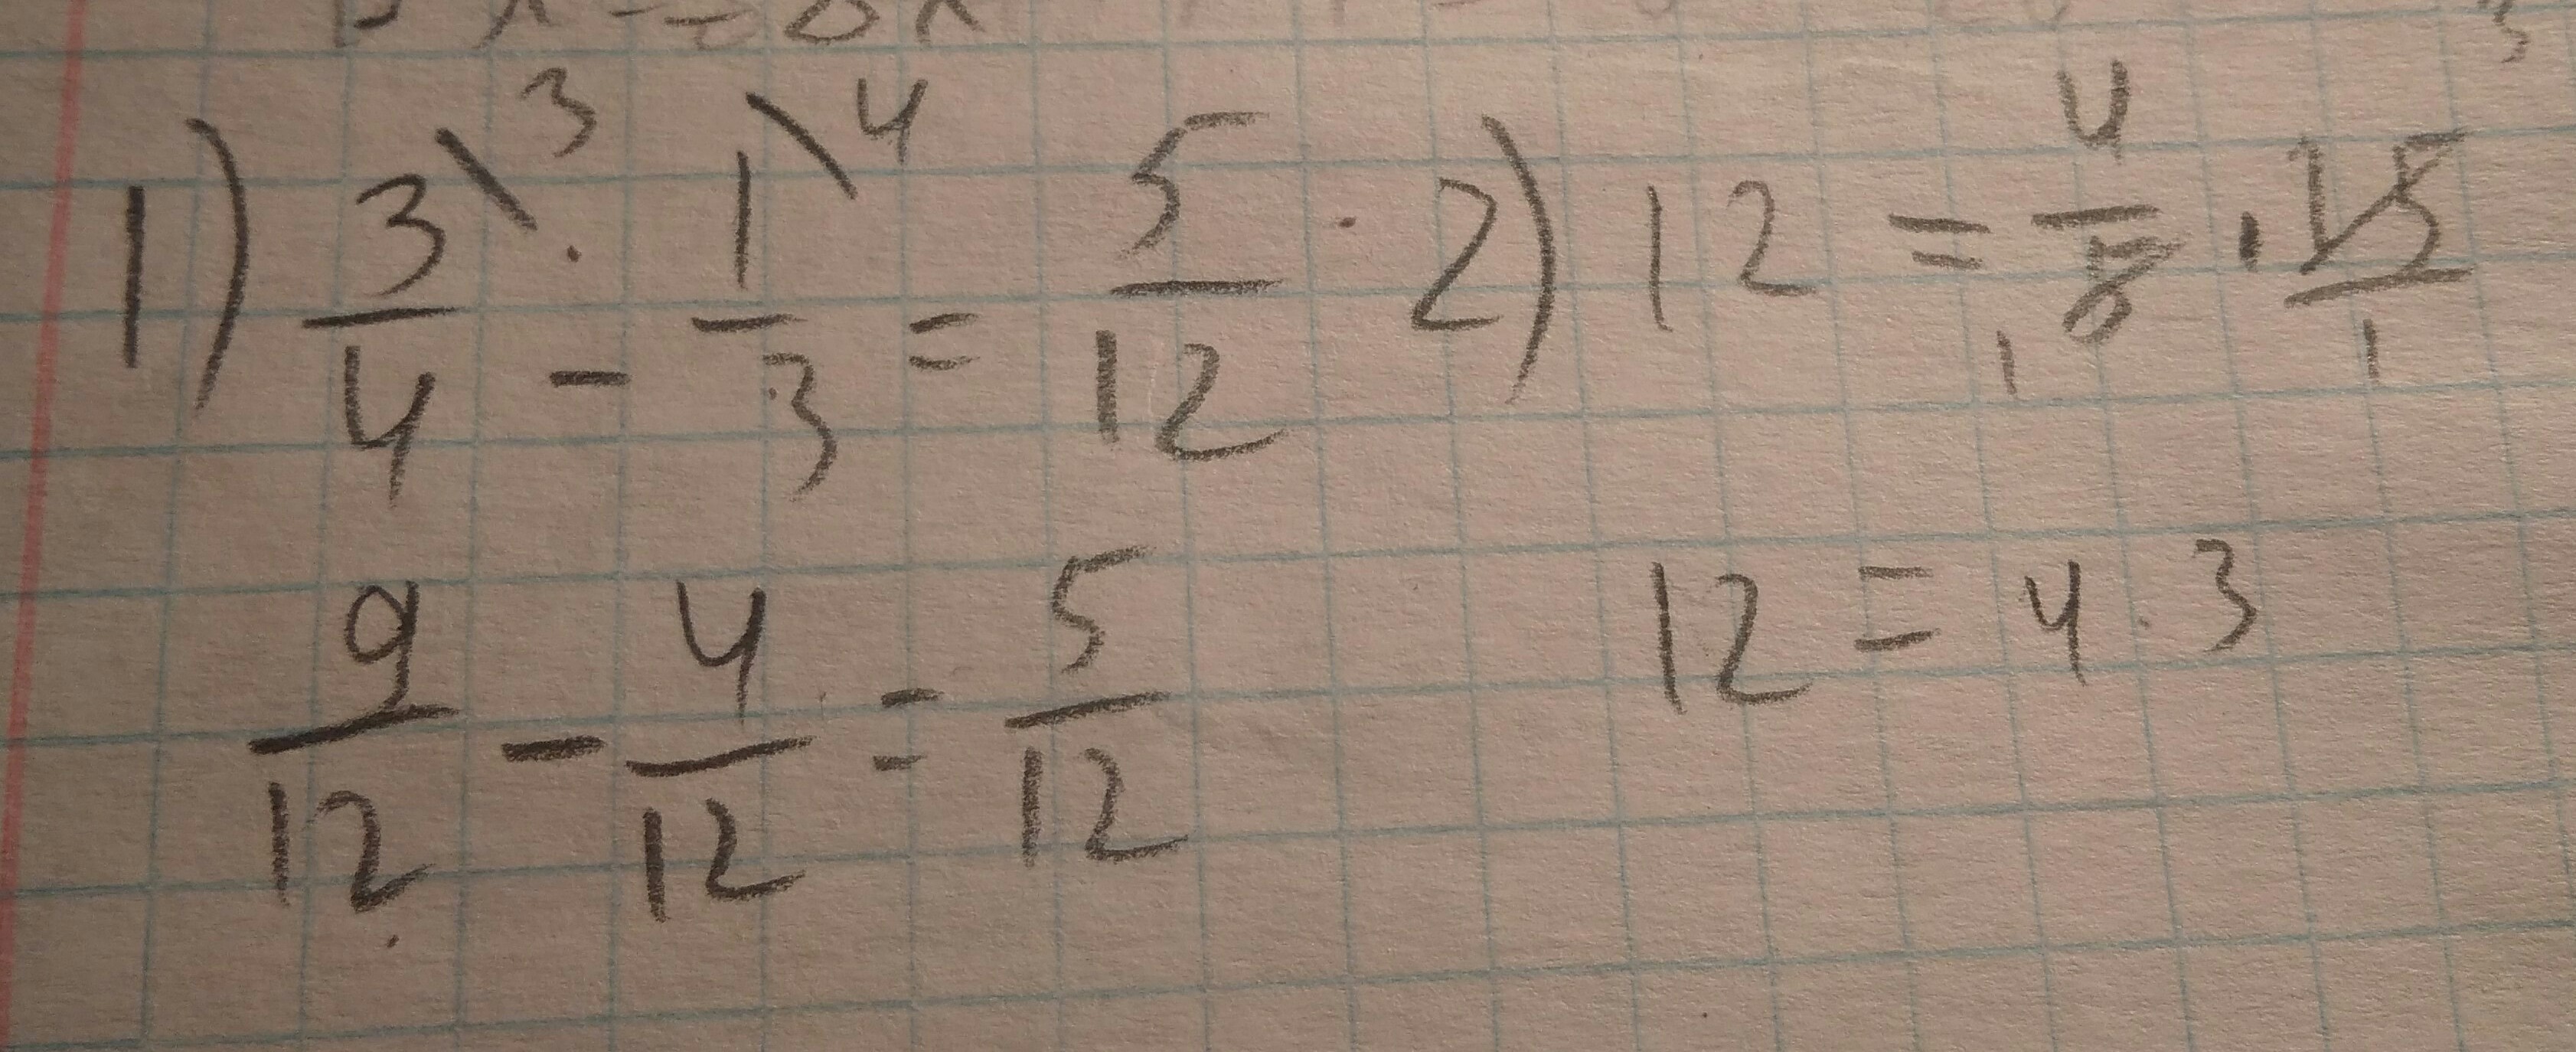 1) 3/4 \3 - 1/3 \4 = 5/12 . 2) 12 = 4/5 · 15/1
1 3
9/12 - 4/12 = 5/12 12 = 4 · 3